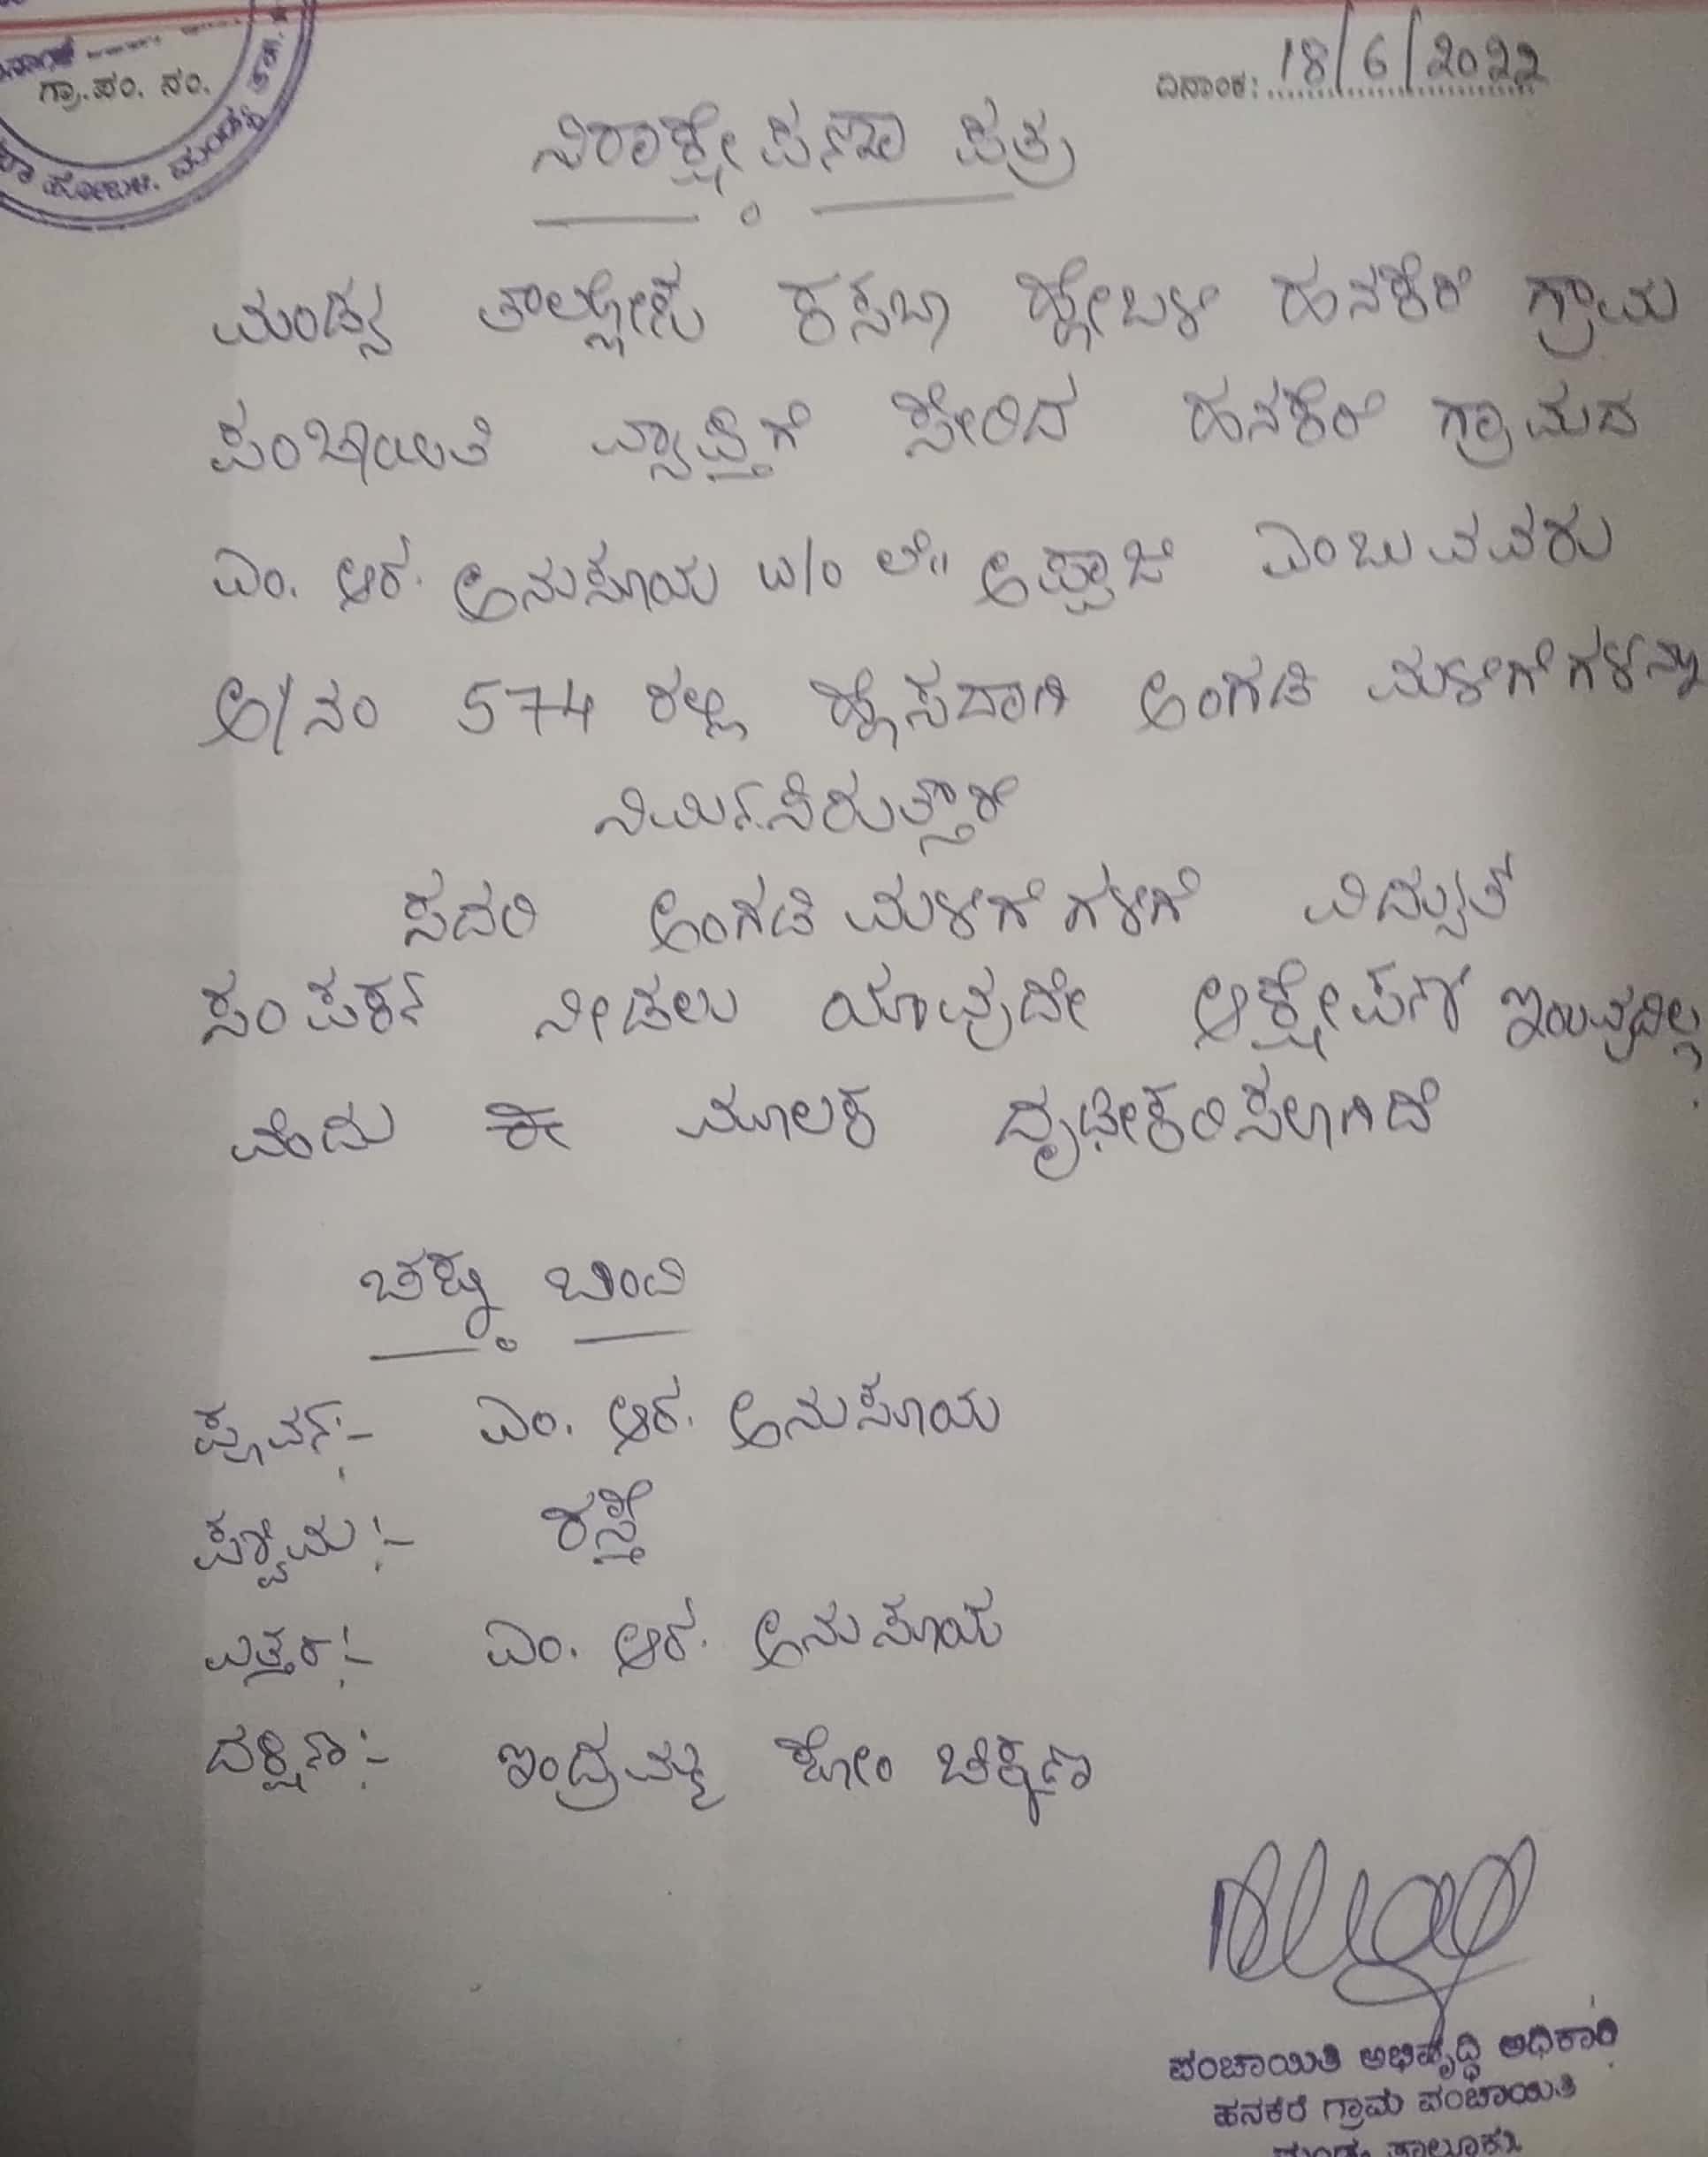 ಗ್ರಾ.ಪಂ. ನಂ.
ಹೋಬಳಿ. ಮಂಡ್ಯ ತಾ.
ದಿನಾಂಕ: 18/6/2022
ನಿರಾಕ್ಷೇಪಣಾ ಪತ್ರ
ಮಂಡ್ಯ ತಾಲ್ಲೋಕು ಕಸಬಾ ಹೋಬಳಿ ಹನಕೆರೆ ಗ್ರಾಮ
ಪಂಚಾಯಿತಿ ವ್ಯಾಪ್ತಿಗೆ ಸೇರಿದ ಹನಕೆರೆ ಗ್ರಾಮದ
ಎಂ. ಆರ್. ಅನುಸೂಯ w/o ಲೇ॥ ಅಪ್ಪಾಜಿ ಎಂಬುವವರು
ಅ/ನಂ 574 ರಲ್ಲಿ ಹೊಸದಾಗಿ ಅಂಗಡಿ ಮಳಿಗೆಗಳನ್ನು
ನಿರ್ಮಿಸಿರುತ್ತಾರೆ
ಸದರಿ ಅಂಗಡಿ ಮಳಿಗೆಗಳಿಗೆ ವಿದ್ಯುತ್
ಸಂಪರ್ಕ ನೀಡಲು ಯಾವುದೇ ಆಕ್ಷೇಪಣೆ ಇರುವುದಿಲ್ಲ
ವೆಂದು ಈ ಮೂಲಕ ದೃಢೀಕರಿಸಲಾಗಿದೆ
ಚಕ್ಕು ಬಂದಿ
ಪೂರ್ವ:- ಎಂ. ಆರ್. ಅನುಸೂಯ
ಪಶ್ಚಿಮ:- ರಸ್ತೆ
ಉತ್ತರ:- ಎಂ. ಆರ್. ಅನುಸೂಯ
ದಕ್ಷಿಣ:- ಇಂದ್ರಮ್ಮ ಕೋಂ ಚಿಕ್ಕಣ್ಣ
ಪಂಚಾಯಿತಿ ಅಭಿವೃದ್ಧಿ ಅಧಿಕಾರಿ
ಹನಕೆರೆ ಗ್ರಾಮ ಪಂಚಾಯಿತಿ
ಮಂಡ್ಯ ತಾಲ್ಲೂಕು